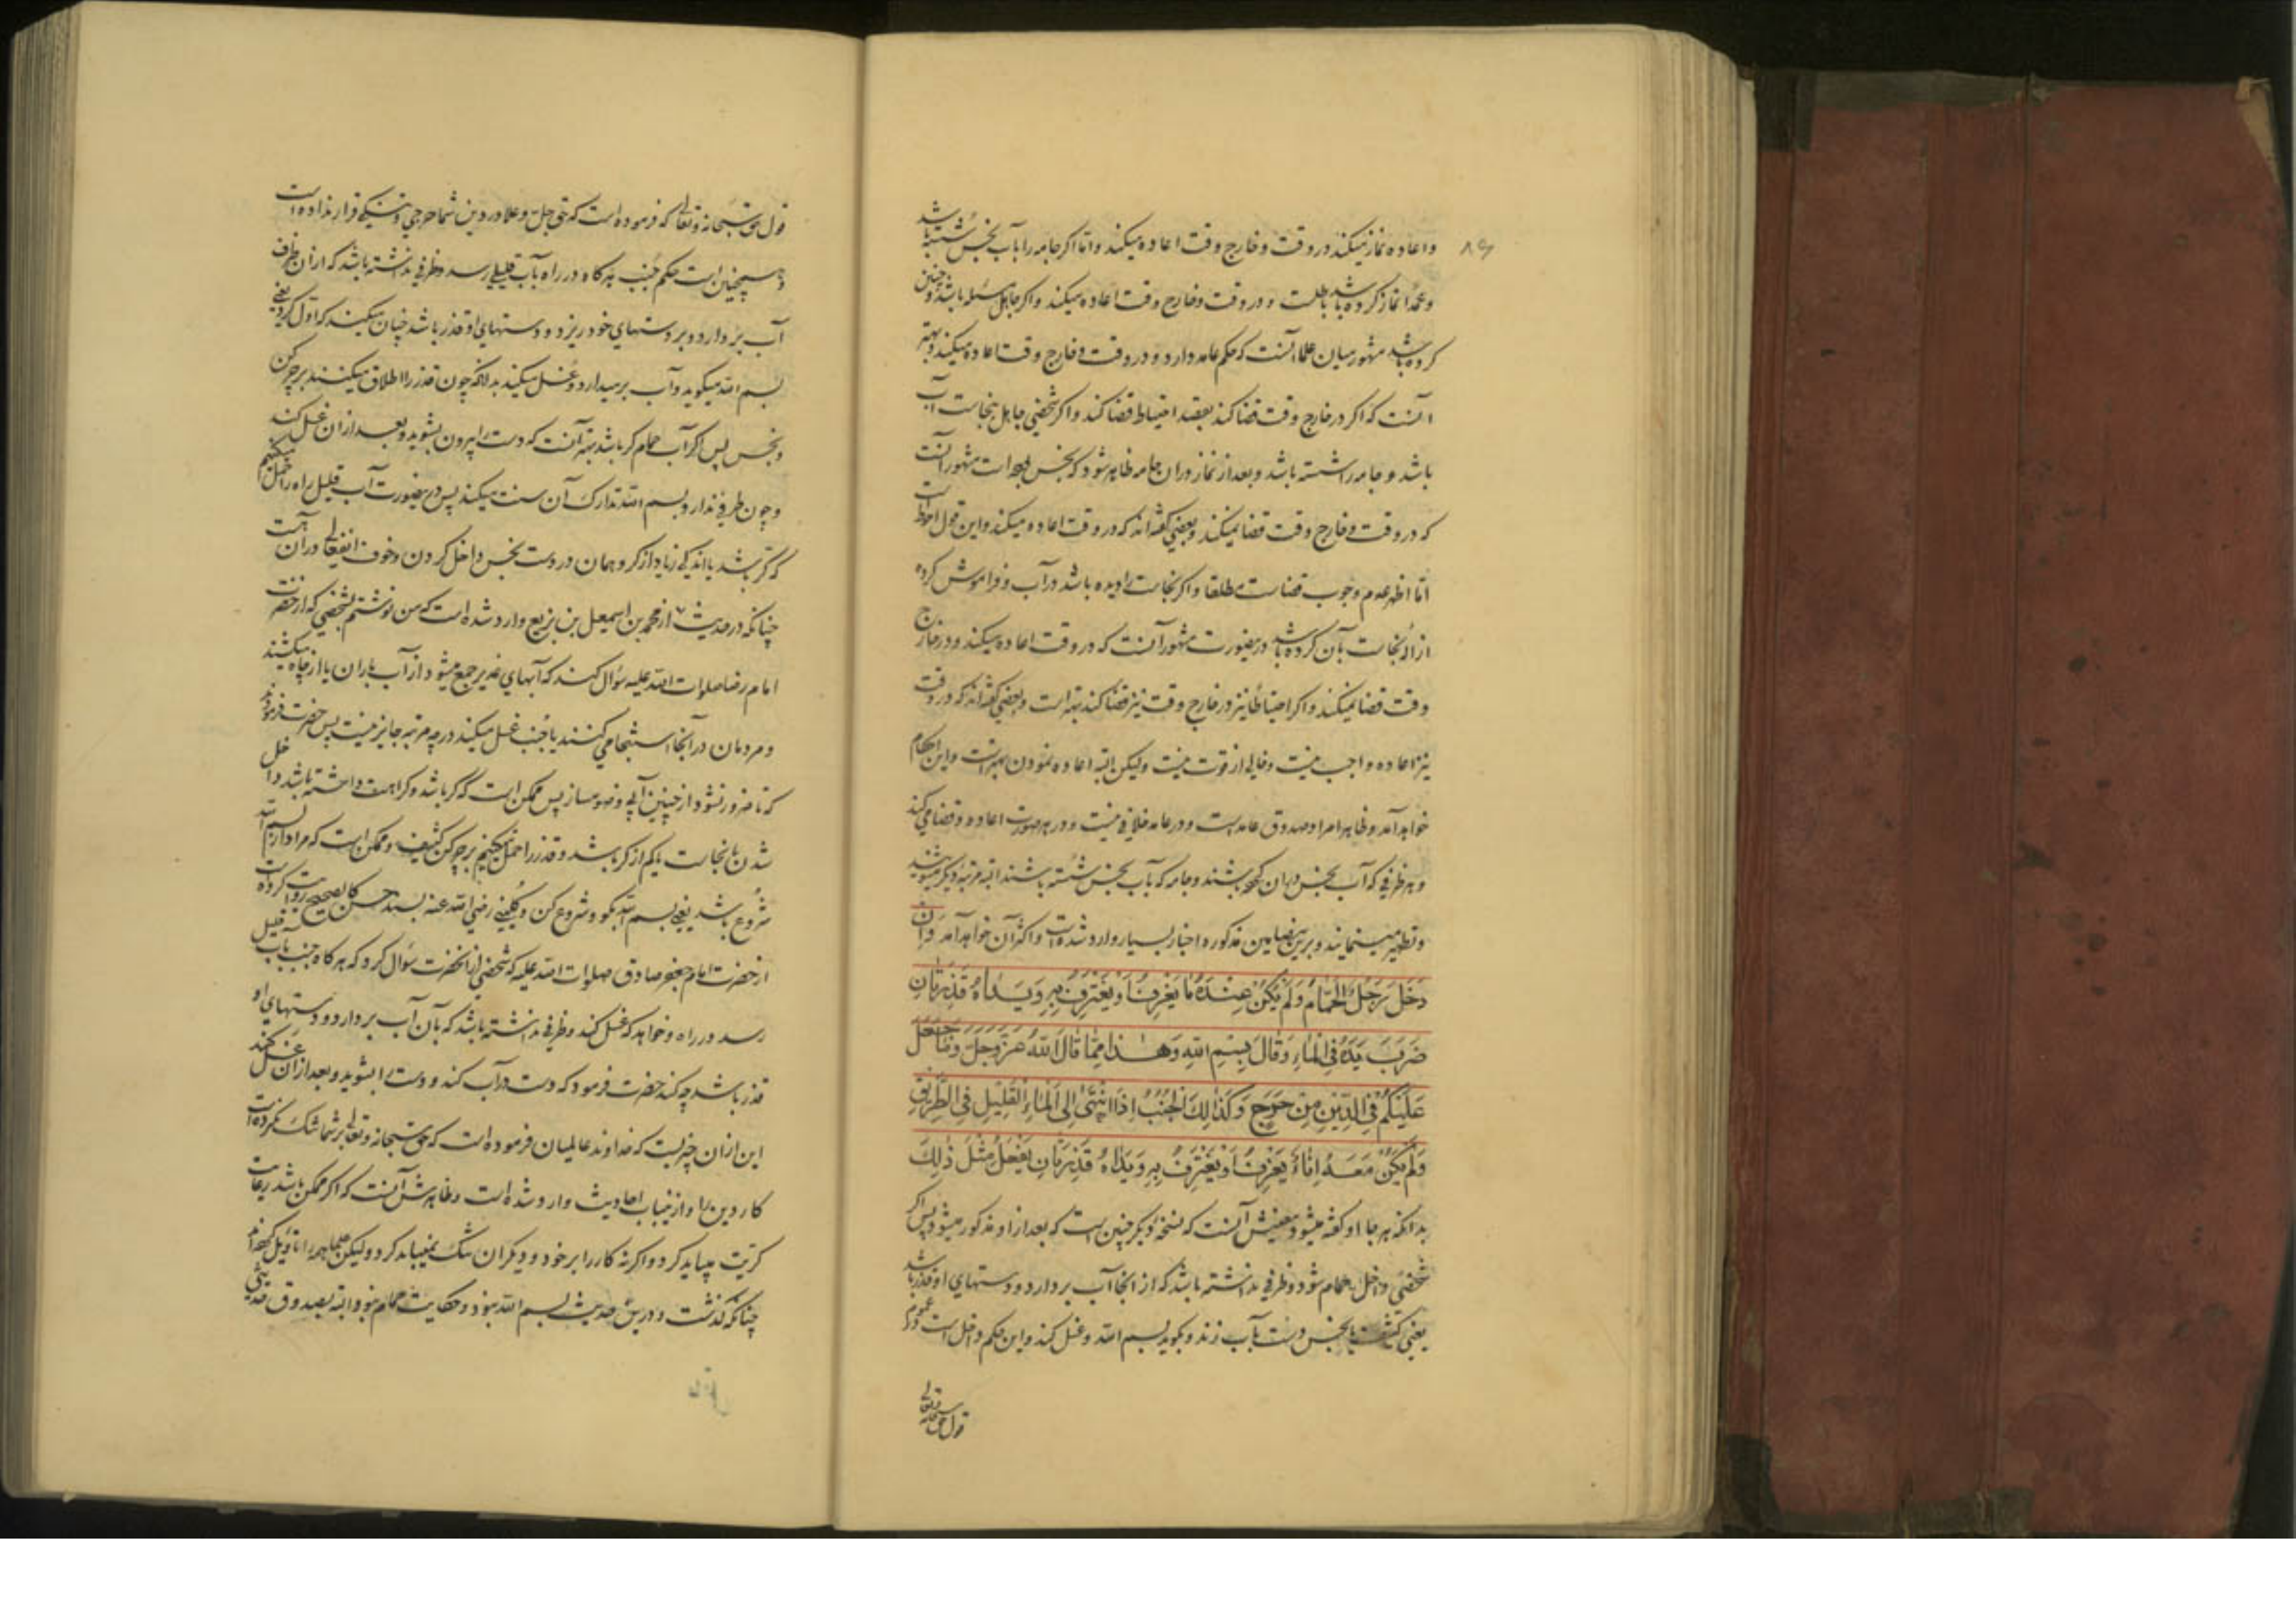 ۸۶
واعاده نماز نمیکند در وقت و خارج وقت اعاده میکند واما اکر جامه را بآب نجس شسته باشد
وعمدا نماز کرده باشد باطلست و در وقت و خارج وقت اعاده میکند واکر جاهل مسئله باشد و چنین
کرده باشد مشهور میان علما آنست که حکم عامد دارد و در وقت و خارج وقت اعاده میکند و بهتر
آنست که اکر در خارج وقت قضا کند بقصد احتیاط قضا کند واکر شخصی جاهل نجاست آب
باشد و جامه را شسته باشد و بعد از نماز در ان جامه ظاهر شود که نجس بوده است مشهور آنست
که در وقت و خارج وقت قضا نمیکند و بعضی کفته اند که در وقت اعاده میکند و این قول احوط است
اما اظهر عدم وجوب قضاست مطلقا واکر نجاست را دیده باشد در آب و فراموش کرده
ازاله نجاست بآن کرده باشد درینصورت مشهور آنست که در وقت اعاده میکند و در خارج
وقت قضا نمیکند واکر احتیاطا نیز در خارج وقت نیز قضا کند بهتر است و بعضی کفته اند که در وقت
نیز اعاده واجب نیست و خالی از قوت نیست ولیکن البته اعاده نمودن بهتر است و این احکام
خواهد آمد و ظاهرا مراد صدوق عامد است و در عامد خلافی نیست و در هر صورت اعاده و قضا می کند
و هر ظرفی که آب نجس در ان کرده باشند و جامه که بآب نجس شسته باشند البته مرتبه دیکر میشویند
و تطهیر مینمایند و برین مضامین مذکوره اخبار بسیار وارد شده است واکثر آن خواهد آمد وَاِن
دَخَلَ رَجُلٌ الْحَمّامَ وَلَمْ یَکُنْ عِنْدَهُ مٰا یَغْرِفُ اَوْ یَغْتَرِفُ بِهِ وَیَدٰاهُ قَذِرَتٰانِ
ضَرَبَ یَدَهُ فِی الْمٰاءِ وَقٰالَ بِسْمِ اللّٰهِ وَهٰذٰا مِمّٰا قٰالَ اللّٰهُ عَزَّوَجَلَّ وَمٰا جَعَلَ
عَلَیْکُمْ فِی الدّینِ مِنْ حَرَجٍ وَکَذٰلِکَ الْجُنُبُ اِذَا انْتَهیٰ اِلَی الْمٰاءِ الْقَلیلِ فِی الطَّریقِ
وَلَمْ یَکُنْ مَعَهُ اِنٰاءٌ یَغْرِفُ اَوْ یَغْتَرِفُ بِهِ وَیَدٰاهُ قَذِرَتٰانِ یَفْعَلُ مِثْلَ ذٰلِکَ
بدانکه هر جا او کفته میشود معنیش آنست که نسخه دیکر چنین است که بعد از او مذکور میشود پس اکر
شخصی داخل حمام شود و ظرفی نداشته باشد که از انجا آب بردارد و دستهای او قذر باشد
یعنی کثیف یا نجس دست بآب زند و بکوید بسم الله و غسل کند و این حکم داخل است در عموم
قول حق سبحانه وتعالی
قول حق سبحانه وتعالی که فرموده است که حق جل وعلا در دین شما حرجی و تنکیی قرار نداده است
و همچنین است حکم جنب هر کاه در راه بآب قلیلی رسد و ظرفی نداشته باشد که از ان ظرف
آب بردارد و بر دستهای خود ریزد و دستهای او قذر باشد چنان میکند که اول کردیعنی
بسم الله میکوید و آب بر میدارد و غسل میکند بدانکه چون قذر را اطلاق میکنند بر چرکن
و نجس پس اکر آب حمام کر باشد بهتر آنست که دست را بیرون بشوید و بعد از ان غسل کند
و چون ظرفی ندارد و بسم الله تدارک آن سنت میکند پس درینصورت آب قلیل راه را حمل میکنیم
که کر باشد یا اندکی زیاد از کر و همان در دست نجس داخل کردن و خوف انفعالی در ان هست
چنانکه در حدیث از محمد بن اسمعیل بن بزیع وارد شده است که من نوشتم بشخصی که از حضرت
امام رضا صلوات الله علیه سؤال کند که آبهای غدیر جمع میشود از آب باران یا از چاه میکشند
و مردمان در آنجا استنجا می کنند یا جنب غسل میکند در چه مرتبه جایز نیست پس حضرت فرمودند
که تا ضرور نشود از چنین آبی وضو مساز پس ممکن است که کر باشد و کراهت داشته باشد داخل
شدن با نجاست یا کم از کر باشد و قذر را حمل کنیم بر چرکن کثیف و ممکن است که مراد از بسم الله
شروع باشد یعنی بسم الله بکو و شروع کن و کلینی رضی الله عنه بسند حسن کالصحیح روایت کرده است
از حضرت امام جعفر صادق صلوات الله علیه که شخصی از انحضرت سؤال کرد که هر کاه جنب بآب قلیل
رسد در راه و خواهد که غسل کند و ظرفی نداشته باشد که بآن آب بردارد و دستهای او
قذر باشد چه کند حضرت فرمود که دست در آب کند و دست را بشوید و بعد از ان غسل کند
این از ان چیزیست که خداوند عالمیان فرموده است که حق سبحانه وتعالی بر شما تنک نکرده است
کار دین را و ازینباب احادیث وارد شده است و ظاهرش آنست که اکر ممکن باشد رعایت
کریت میباید کرد و اکر نه کار را بر خود و دیکران تنک نمیباید کرد و لیکن علما همه را تاویل کرده اند
چنانکه کذشت و در بعضی حدیث بسم الله نبود و حکایت حمام نبود البته بصدوق حدیثی